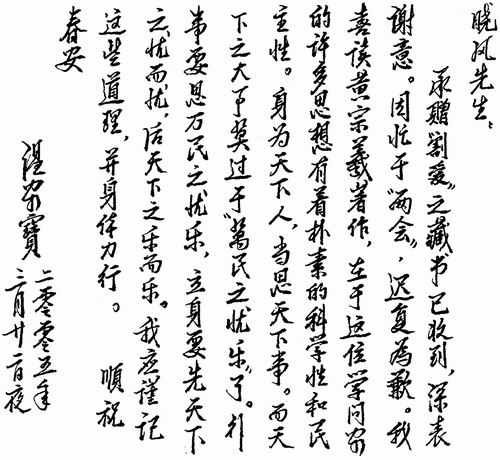 晓风先生：
承赠“割爱”之藏书已收到，深表
谢意。因忙于“两会”，迟复为歉。我
喜读黄宗羲著作，在于这位学问家
的许多思想有着朴素的科学性和民
主性。身为天下人，当思天下事。而天
下之大事莫过于“萬民之忧乐”了。行
事要思万民之忧乐，立身要先天下
之忧而忧，后天下之乐而乐。我应谨记
这些道理，并身体力行。 順祝
春安
温家寶
二零零五年
三月廿二日夜